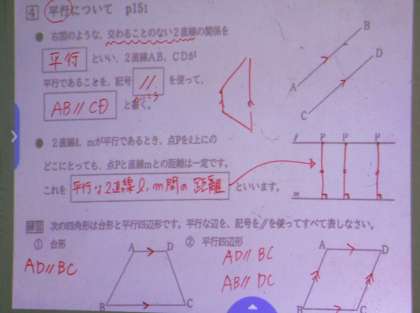 4 平行について p151
右図のような、交わることのない2直線の関係を
平行 といい、2直線AB、CDが
平行であることを、記号 // を使って、
AB//CD と書く。
B
D
A
C
2直線ℓ、mが平行であるとき、点Pをℓ上の
どこにとっても、点Pと直線mとの距離は一定です。
これを 平行な2直線ℓ,m間の距離 といいます。
ℓ P P P
m
練習 次の四角形は台形と平行四辺形です。平行な辺を、記号//を使ってすべて表しなさい。
① 台形 ② 平行四辺形
AD//BC
A D
B C
AD//BC
AB//DC
A D
B C